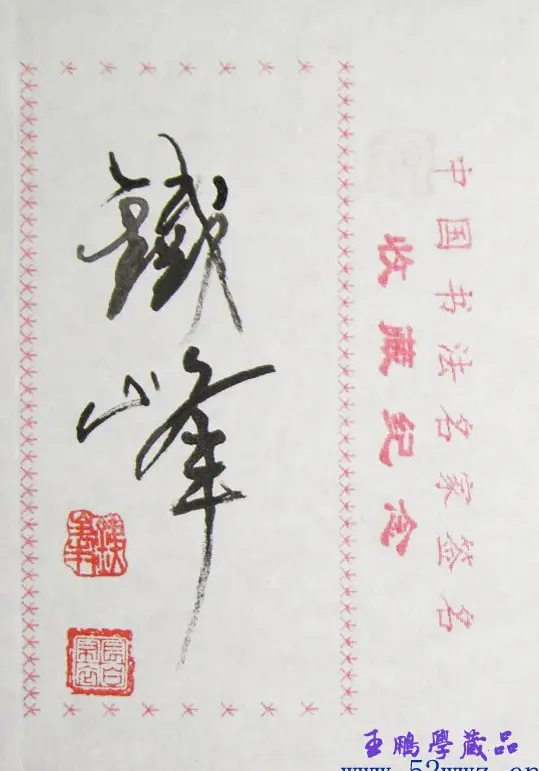 中国书法名家签名
收藏纪念
鐵峰
王鵬學藏品
www.52wwz.cn